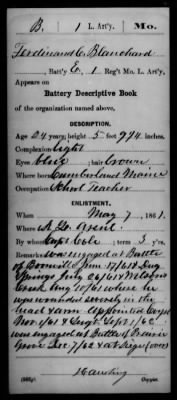 B. 1 L. Art'y. Mo.
Ferdinand C. Blanchard
, Batt'y E, 1 Reg't Mo. L. Art'y,
Appears on
Battery Descriptive Book
of the organization named above.
DESCRIPTION.
Age 24 years; height 5 feet 9 3/4 inches.
Complexion light
Eyes blue ; hair brown
Where born Cumberland Maine
Occupation School Teacher
ENLISTMENT.
When May 7, 1861.
Where
By Capt Cole ; term 3 y'rs.
Remarks was engaged at Battle
of Boonvill June 17/61 & Dug
Springs July 26/61 & Wilsons
Creek Aug 10/61 where he
was wounded severely in the
head & arm Appointed Corpl
Nov 1/61 & Sergt Sept 1/62
was engaged at Battle of Prairie
Grove Dec 7/62 & at Siege (over)
Copyist.